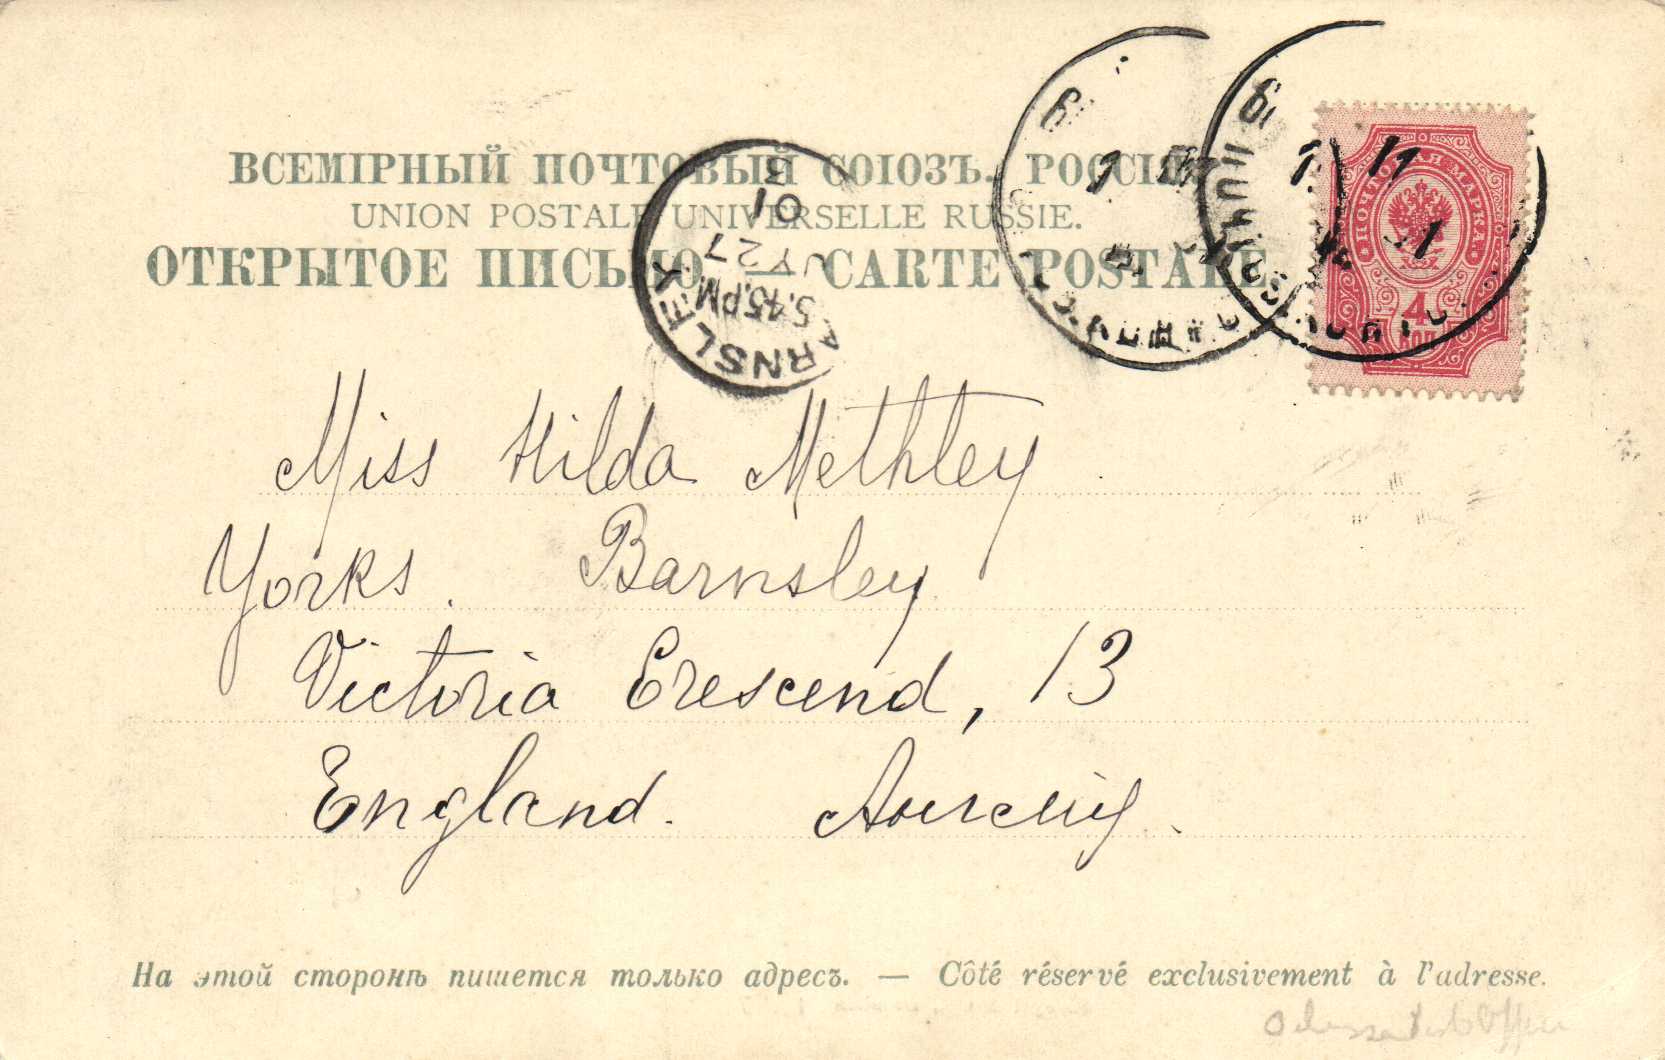 ВСЕМІРНЫЙ ПОЧТОВЫЙ СОЮЗЪ. РОССІЯ.
UNION POSTALE UNIVERSELLE RUSSIE.
ОТКРЫТОЕ ПИСЬМО — CARTE POSTALE
BARNSLEY
5.45.PM
JY 27
01
3
ПОЧТОВАЯ МАРКА
4
КОП
Miss Hilda Methley
Yorks. Barnsley
Victoria Crescend, 13
England. Англія.
На этой сторонѣ пишется только адресъ. — Côté réservé exclusivement à l'adresse.
Odessa Post Office